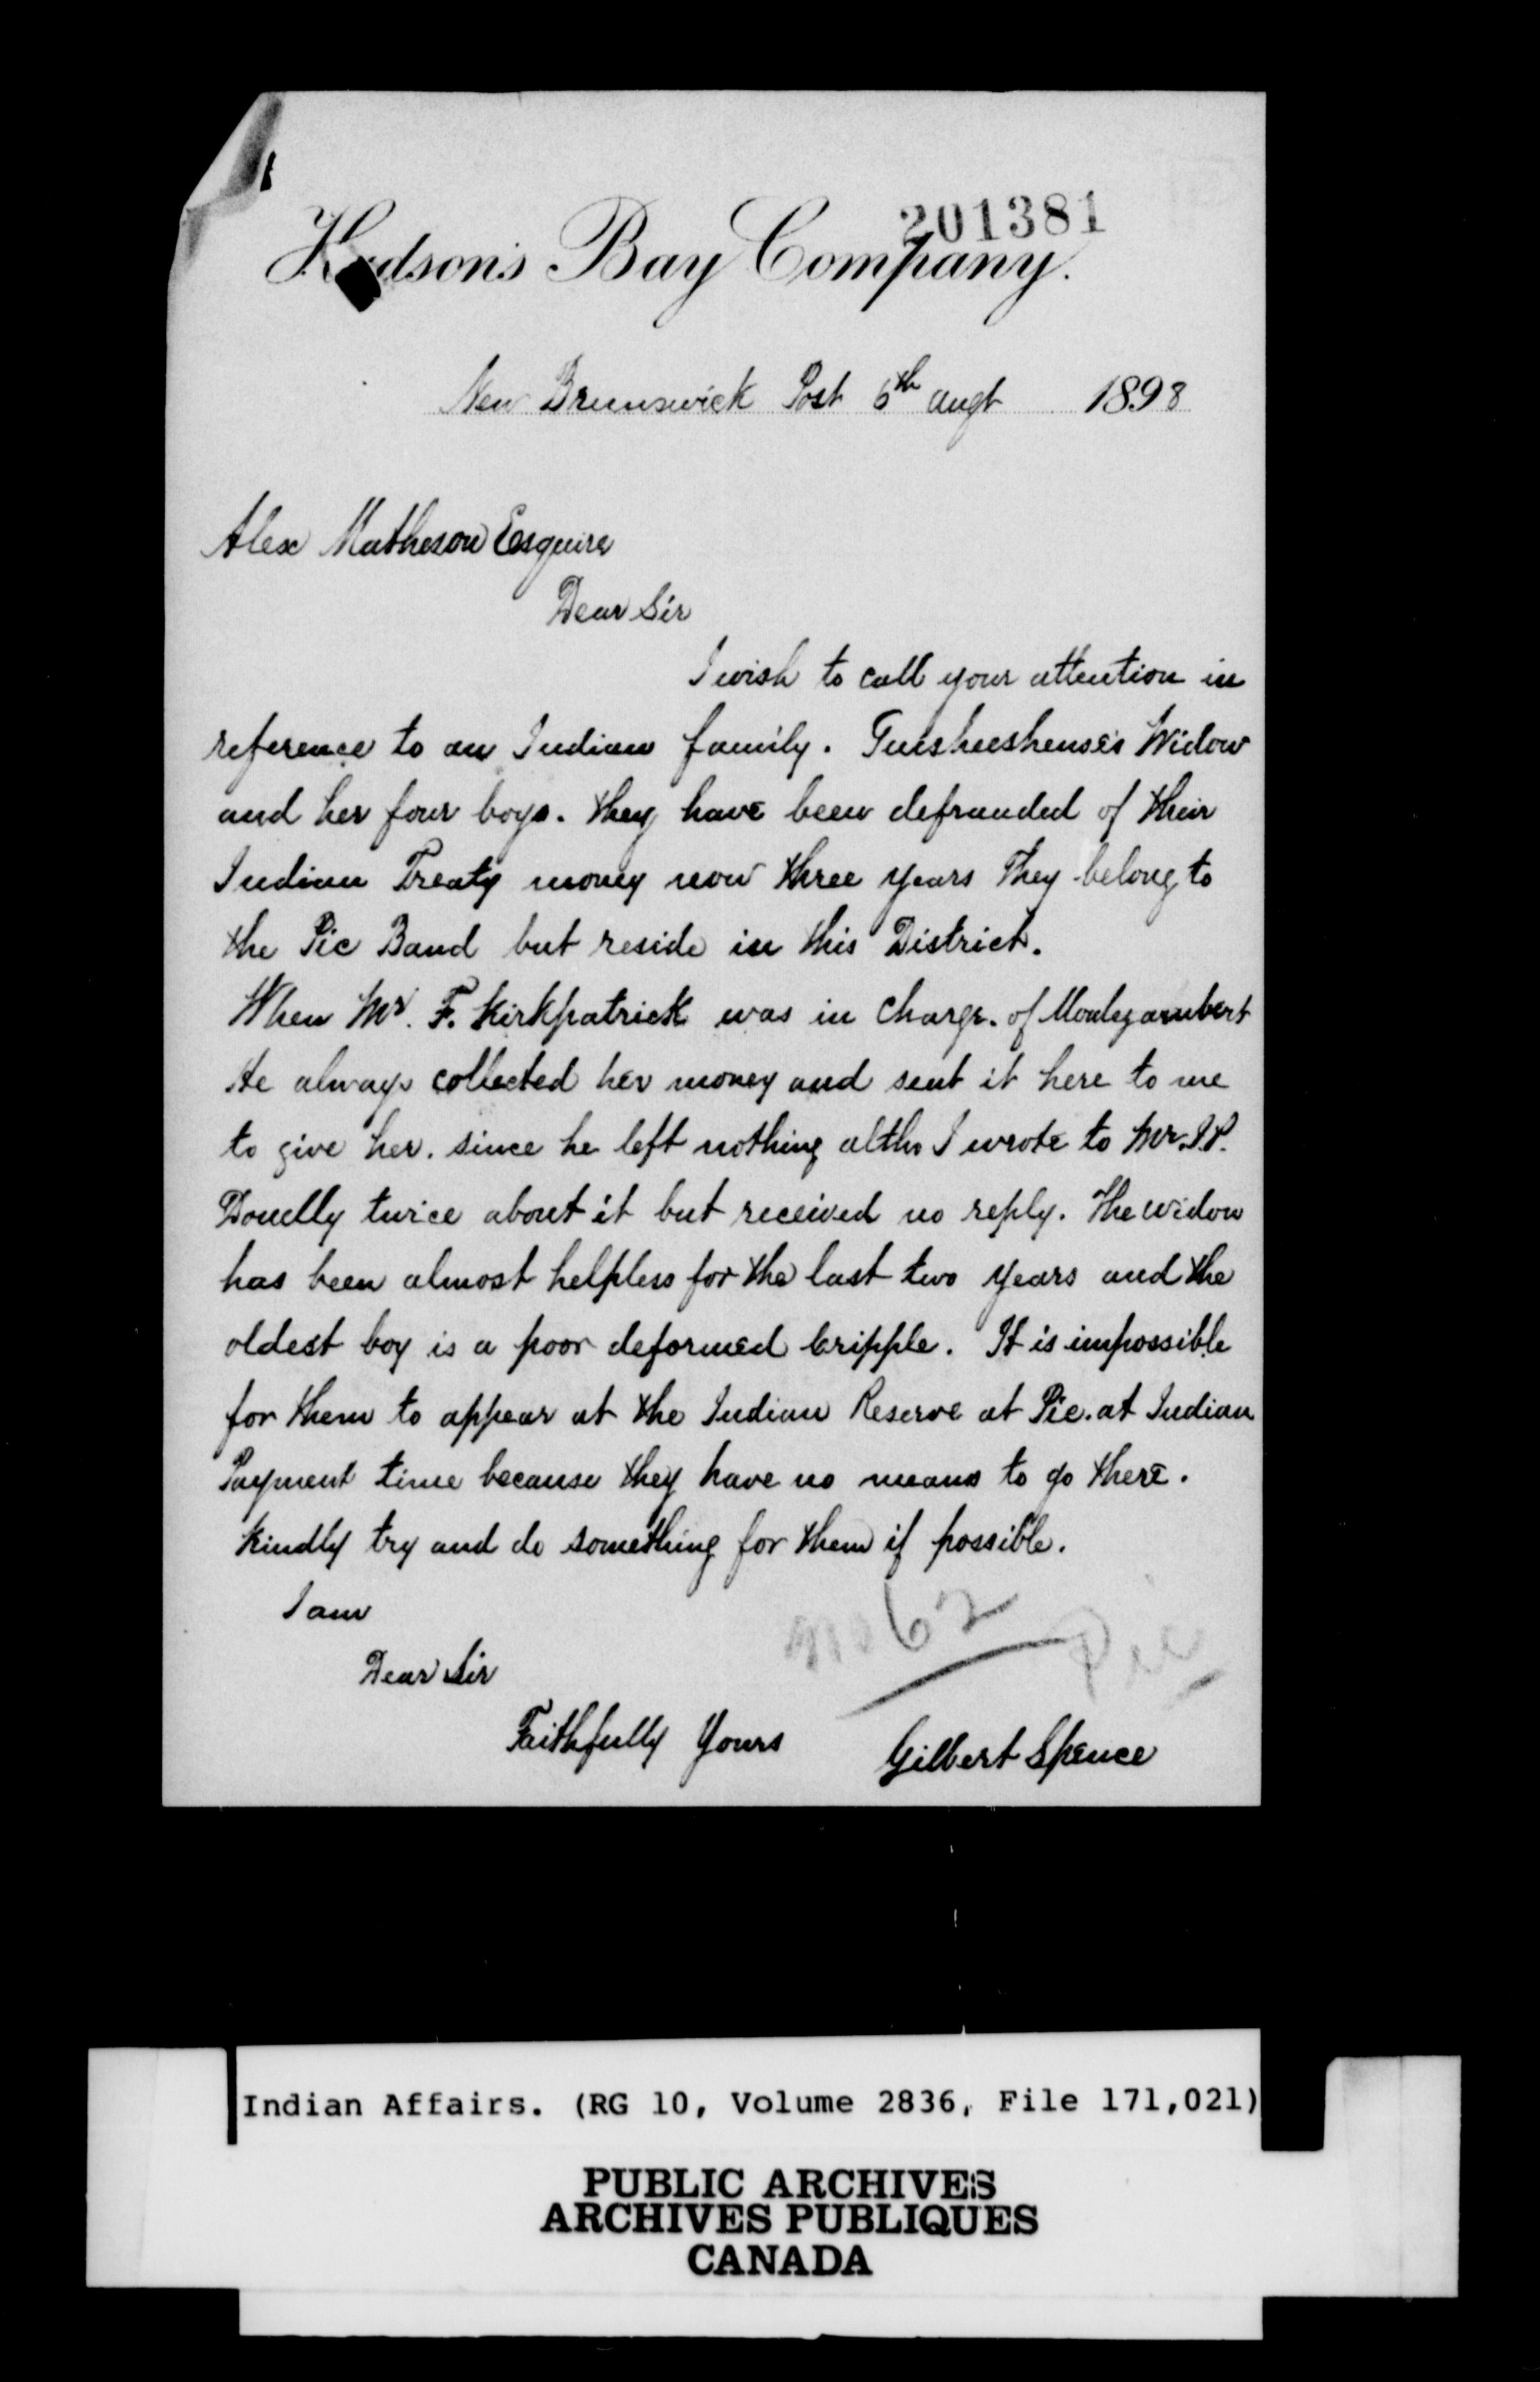 201381
Hudson's Bay Company.
New Brunswick Post 6th augt 1898
Alex Matheson Esquire
Dear Sir
I wish to call your attention in
reference to an Indian family. Widow
and her four boys. they have been defrauded of their
Indian Treaty money now three years They belong to
the Pic Band but reside in this District.
When Mr. F. Kirkpatrick was in Charge. of Montezambert
He always collected her money and sent it here to me
to give her. since he left nothing altho I wrote to Mr. J.P.
Donelly twice about it but received no reply. The widow
has been almost helpless for the last two years and the
oldest boy is a poor deformed Cripple. It is impossible
for them to appear at the Indian Reserve at Pic. at Indian
Payment time because they have no means to go there.
Kindly try and do something for them if possible.
I am
Dear Sir
No 62 Pic
Faithfully Yours Gilbert Spence
Indian Affairs. (RG 10, Volume 2836, File 171,021)
PUBLIC ARCHIVES
ARCHIVES PUBLIQUES
CANADA